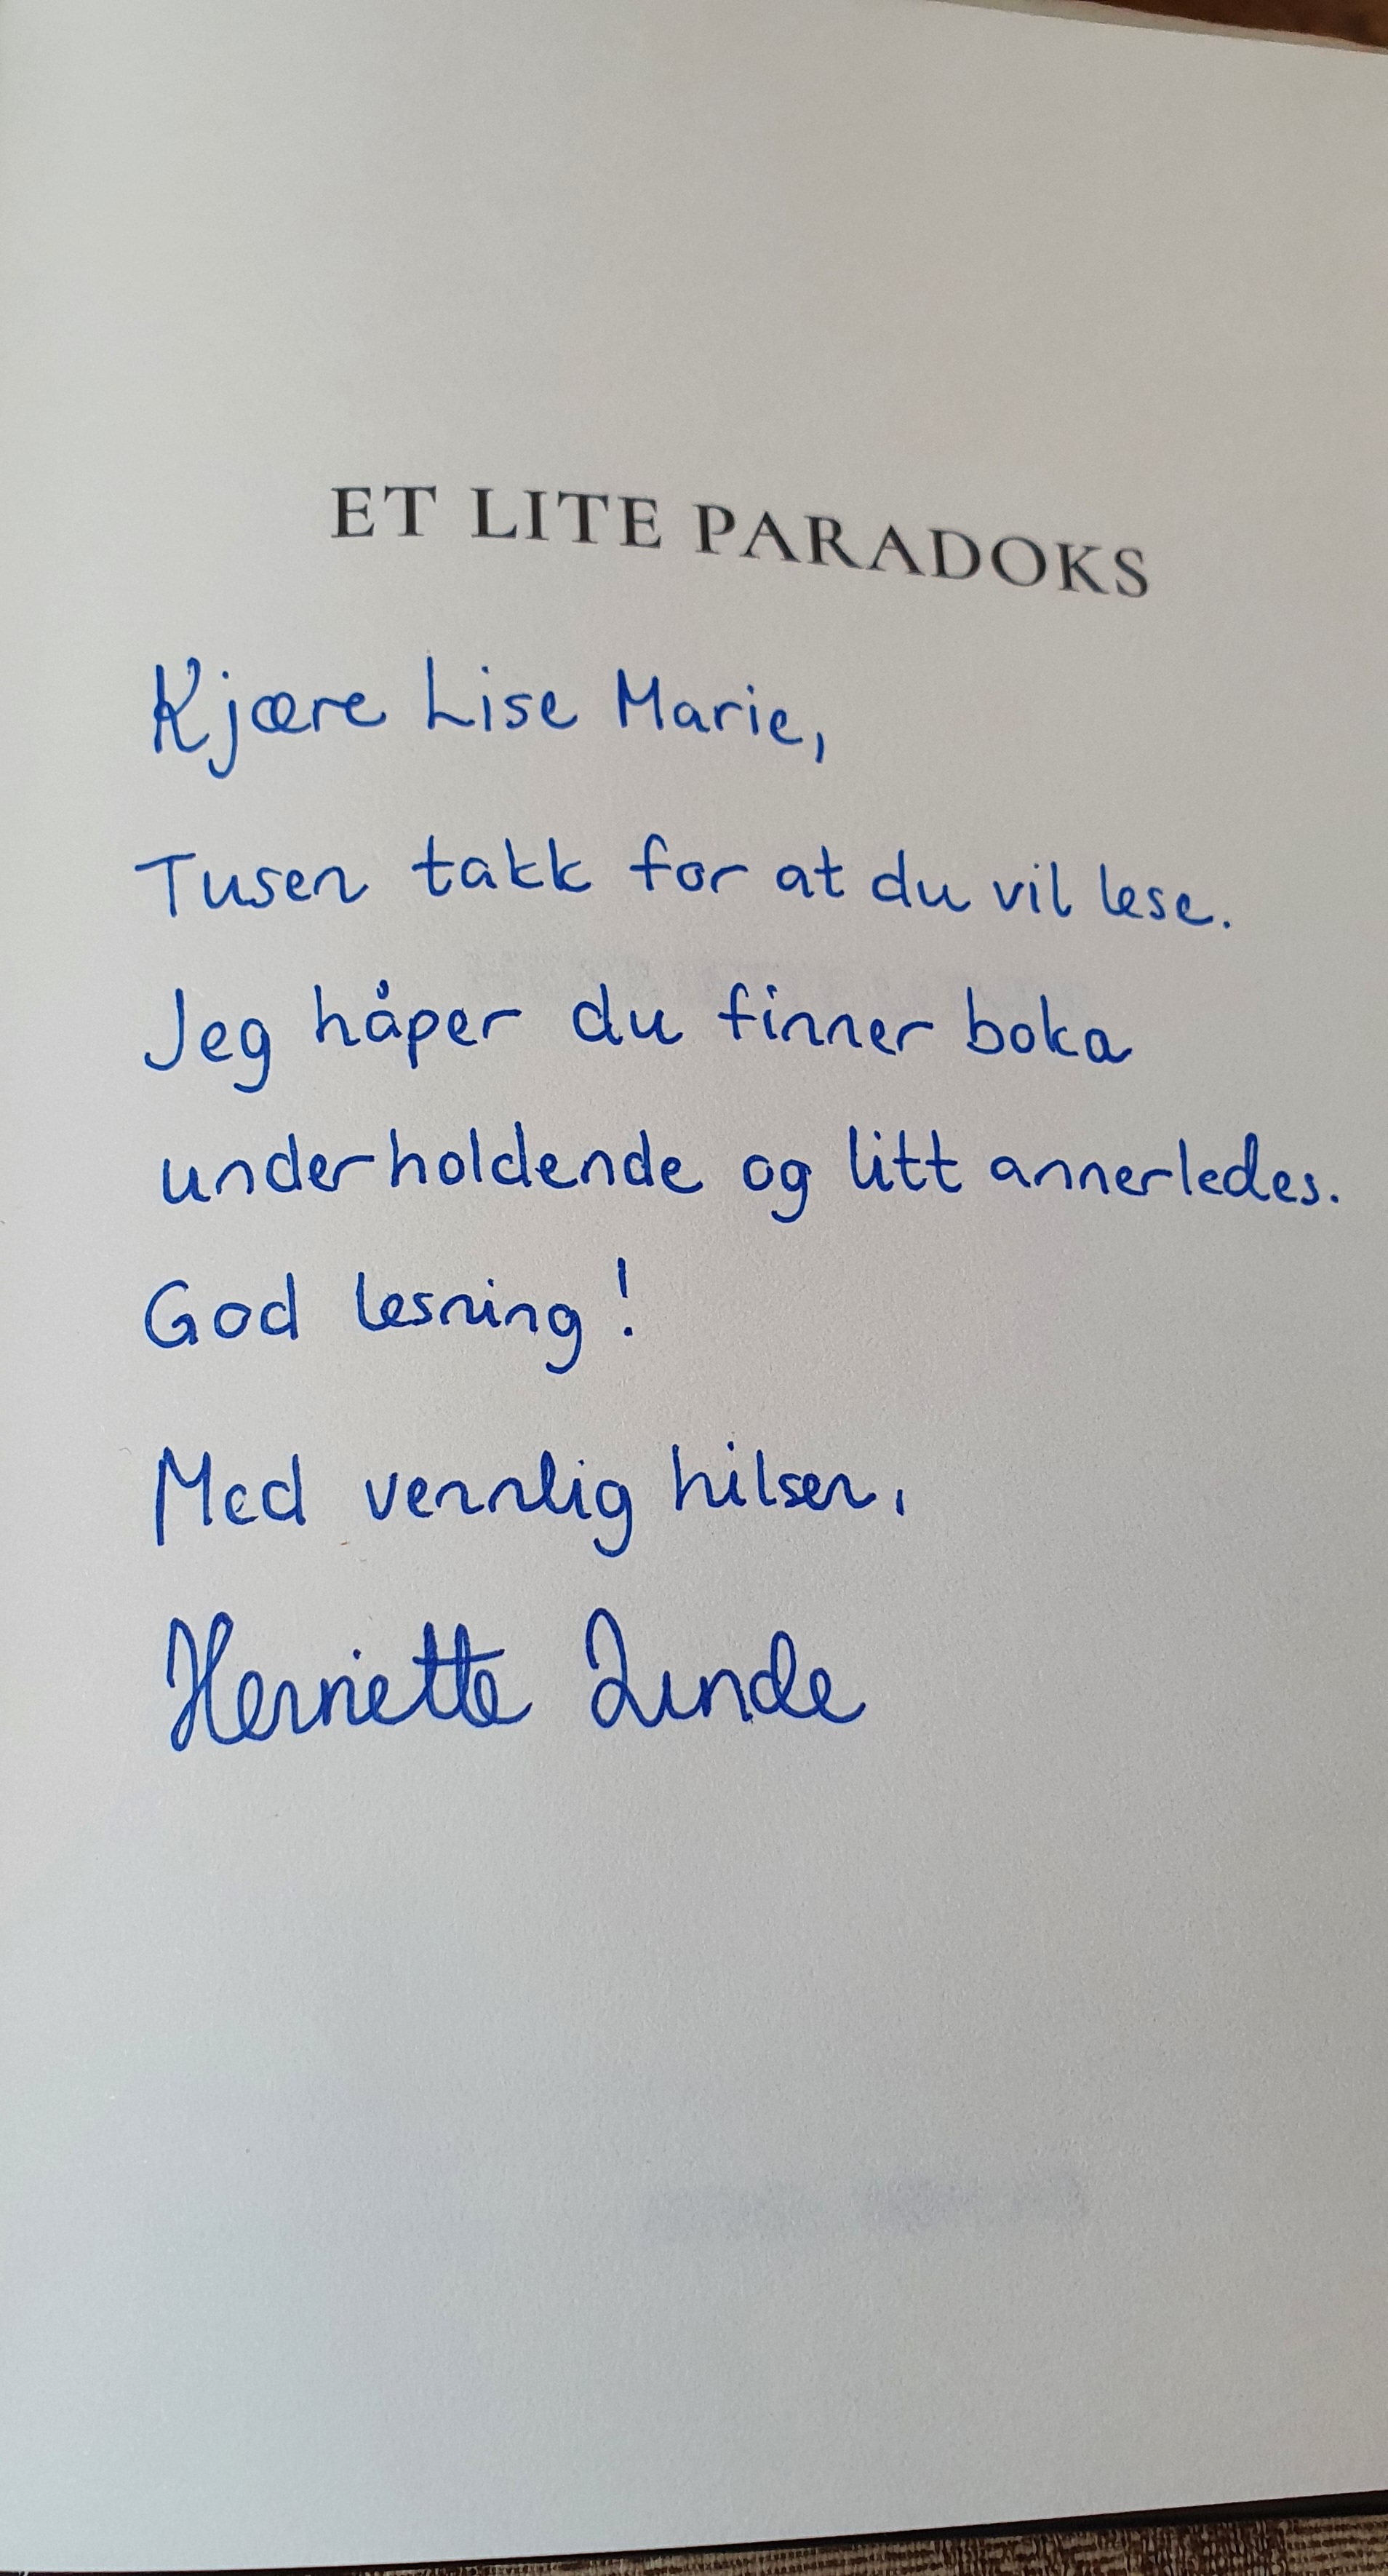 ET LITE PARADOKS
Kjære Lise Marie,
Tusen takk for at du vil lese.
Jeg håper du finner boka
underholdende og litt annerledes.
God lesning!
Med vennlig hilsen,
Henriette Lunde